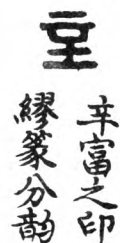 辛富之印
繆篆分韵